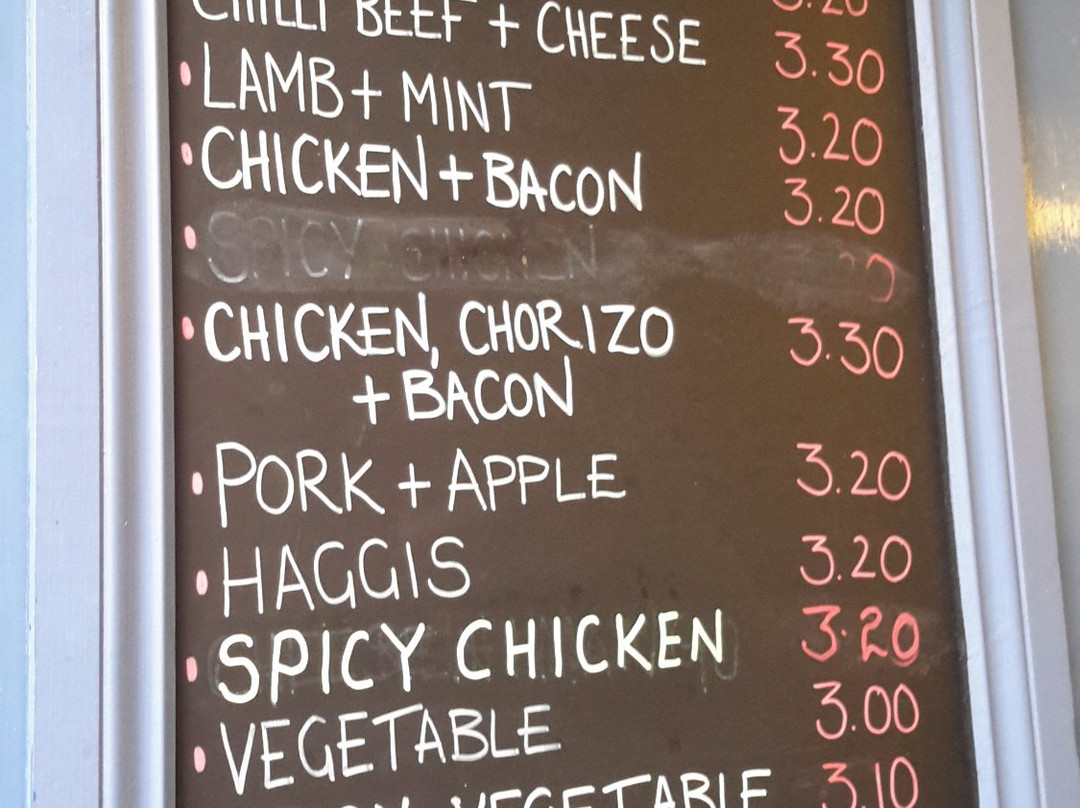 3.20
CHILLI BEEF + CHEESE 3.30
• LAMB + MINT 3.20
• CHICKEN + BACON 3.20
• SPICY CHICKEN
• CHICKEN, CHORIZO 3.30
+ BACON
• PORK + APPLE 3.20
• HAGGIS 3.20
• SPICY CHICKEN 3.20
• VEGETABLE 3.00
VEGETABLE 3.10